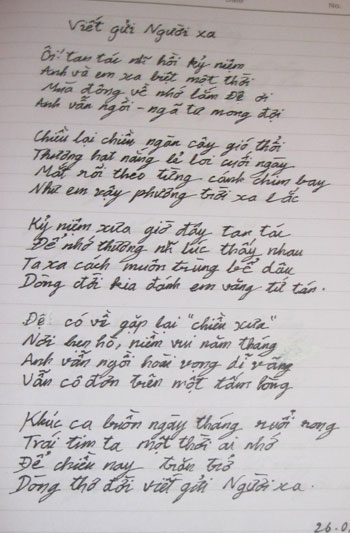 Viết gửi Người xa
tan tác hồi kỷ niệm
Anh và em xa biệt một thời
Mùa đông về nhớ lắm Đê ơi
Anh vẫn ngồi - ngã tư mong đợi
Chiều lại chiều ngàn cây gió thổi
Thương hạt nắng lẻ loi cuối ngày
Mắt rồi theo từng cánh chim bay
Như em rày phương trời xa lắc
Kỷ niệm xưa giờ đây tan tác
Để nhớ thương lúc thấy nhau
Ta xa cách muôn trùng bể dâu
Dòng đời kia đánh em văng tứ tán.
Đê có về gặp lại "chiều xưa"
Nơi hẹn hò, niềm vui năm tháng
Anh vẫn ngồi hoài vọng dĩ vãng
Vẫn cô đơn trên một tấm lòng
Khúc ca buồn ngày tháng ruổi rong
Trái tim ta một thời ai nhớ
Để chiều nay trăn trở
Dòng thơ đời viết gửi Người xa.
26.0